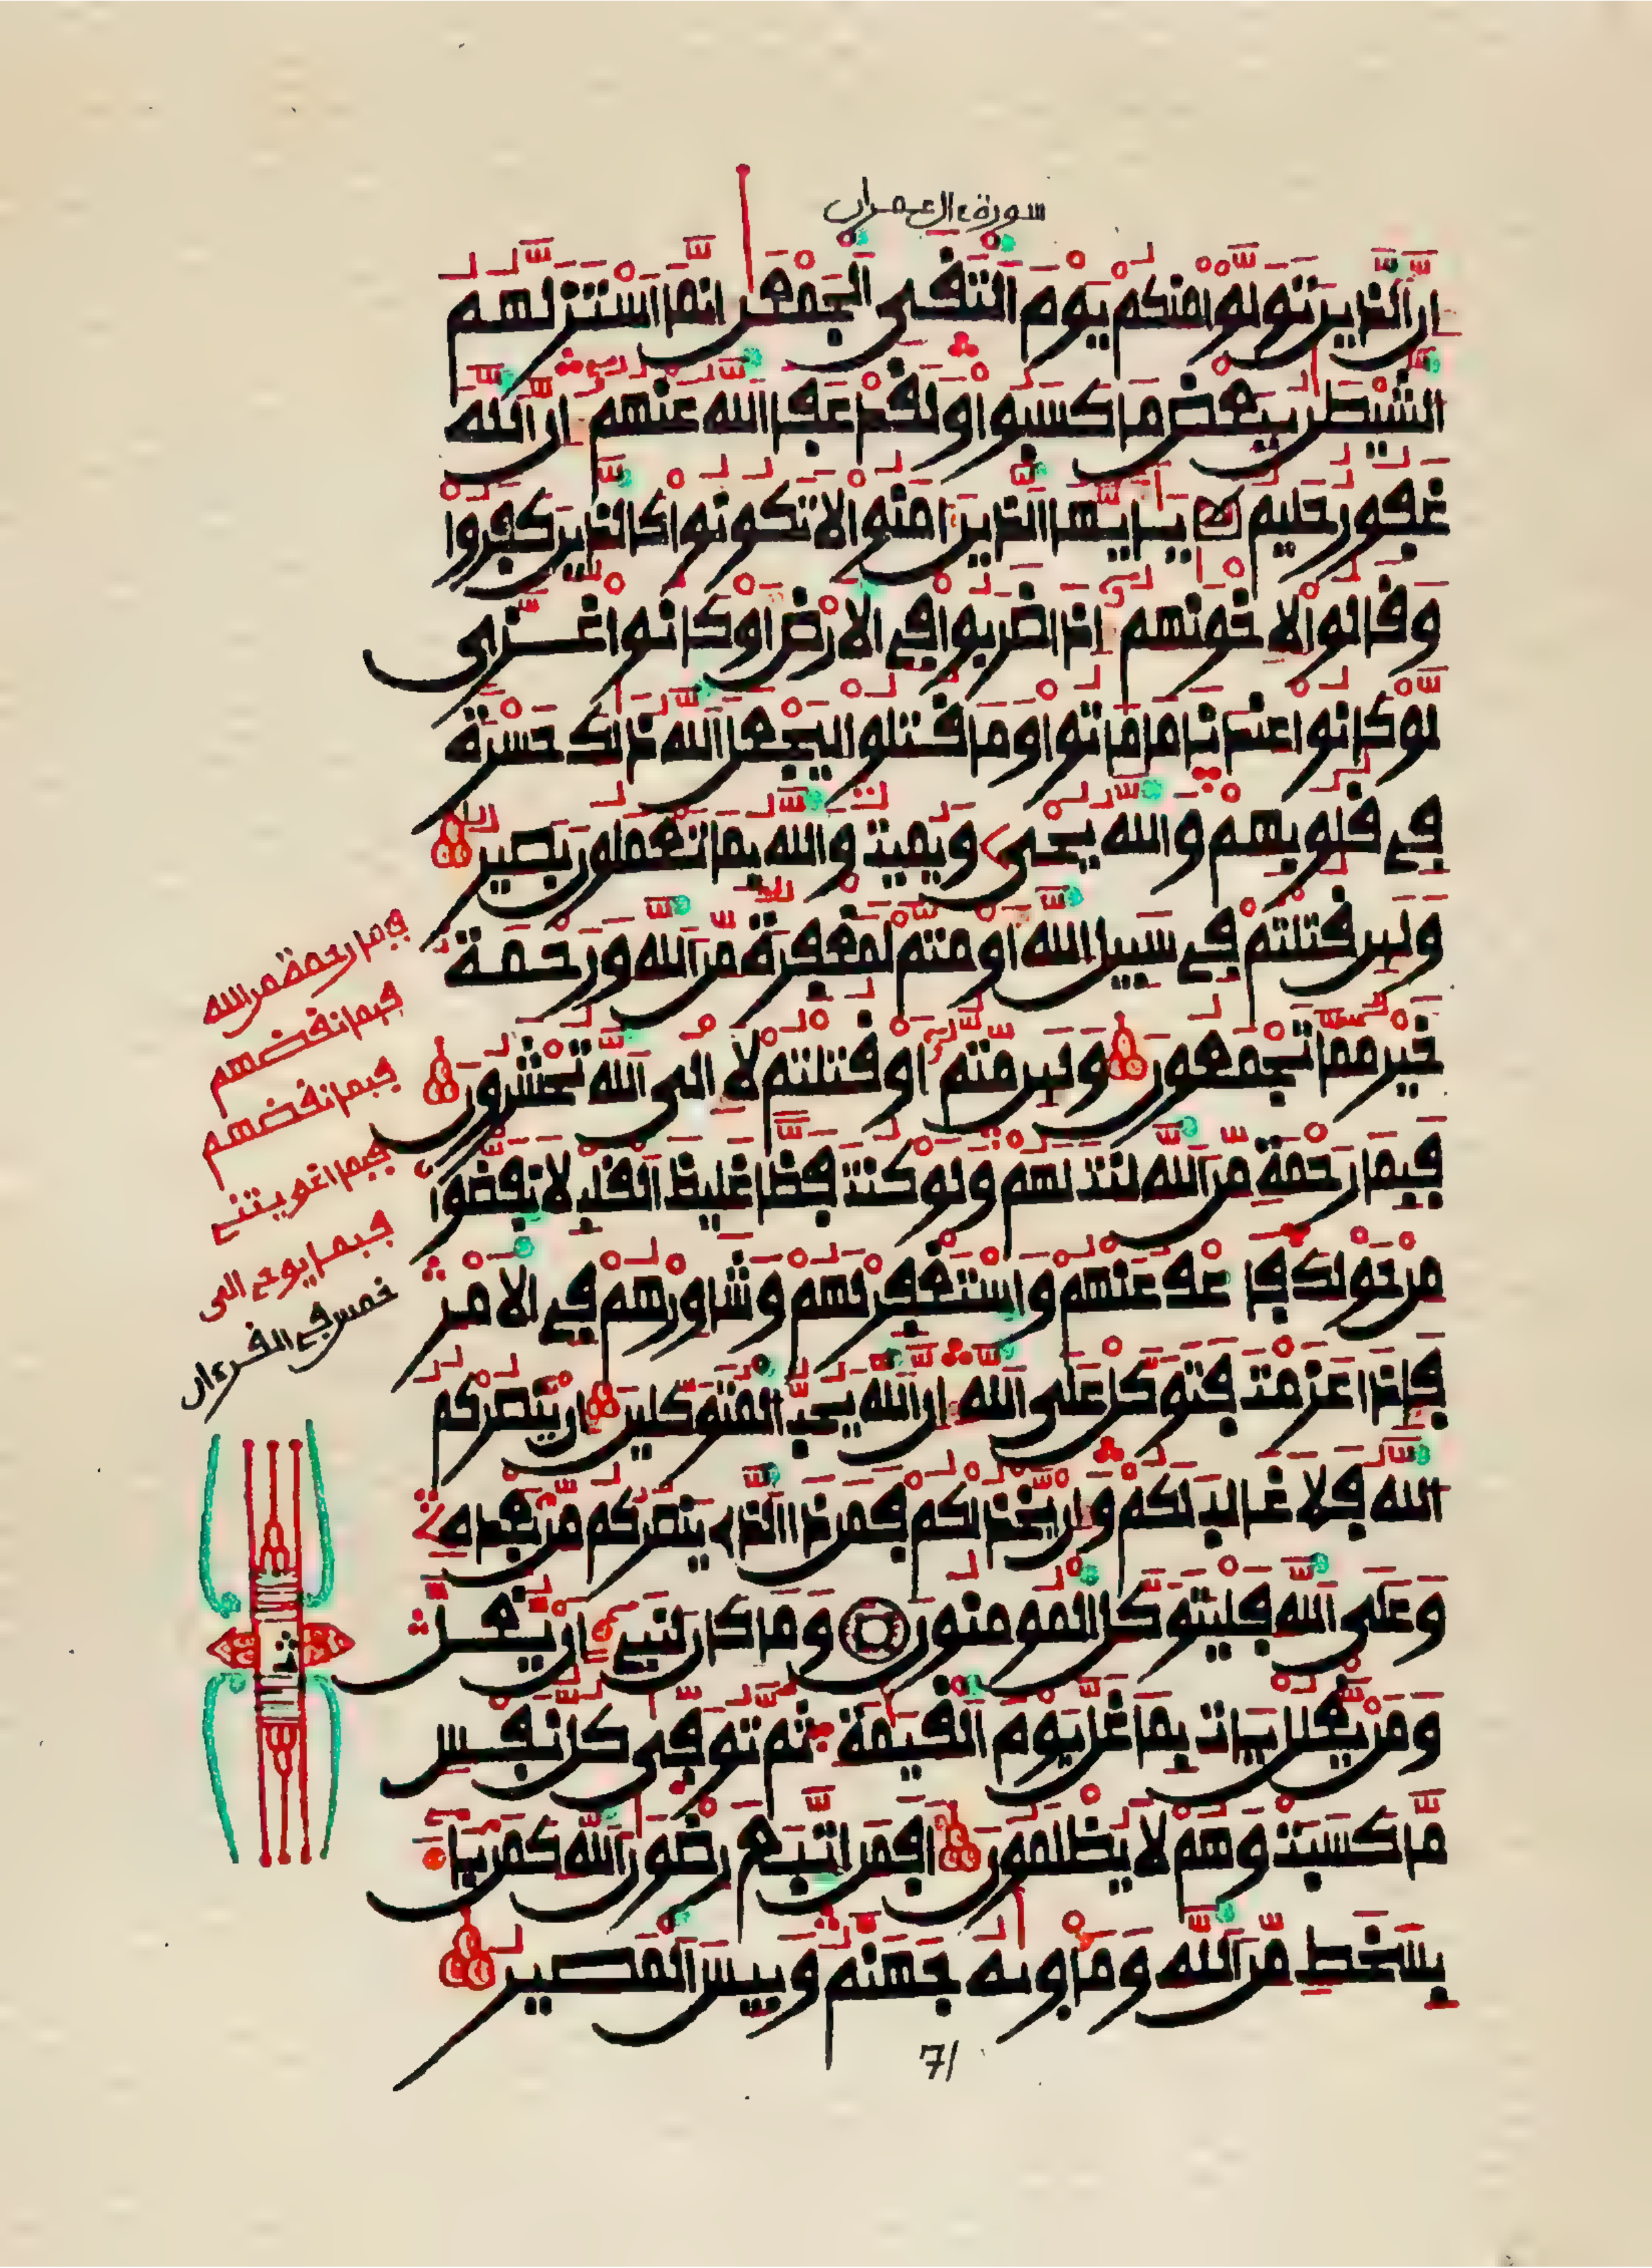 سورة ءال عمران
إن الذين تولوا منكم يوم التقى الجمعن إنما استزلهم
الشيطن ببعض ما كسبوا ولقد عفا الله عنهم إن الله
غفور حليم يأيها الذين ءامنوا لا تكونوا كالذين كفروا
وقالوا لإخونهم إذا ضربوا في الارض أو كانوا غزى
لو كانوا عندنا ما ماتوا وما قتلوا ليجعل الله ذلك حسرة
في قلوبهم والله يحي ويميت والله بما تعملون بصير
ولين قتلتم في سبيل الله أو متم لمغفرة من الله ورحمة
خير مما تجمعون ولين متم أو قتلتم لإلى الله تحشرون
فبما رحمة من الله لنت لهم ولو كنت فظا غليظ القلب لانفضوا
من حولك فاعف عنهم واستغفر لهم وشاورهم في الامر
فإذا عزمت فتوكل على الله إن الله يحب المتوكلين إن ينصركم
الله فلا غالب لكم وإن يخذلكم فمن ذا الذي ينصركم من بعده
وعلى الله فليتوكل المومنون وما كان لنبيء ان يغل
ومن يغلل يات بما غل يوم القيمة ثم توفى كل نفس
ما كسبت وهم لا يظلمون أفمن اتبع رضون الله كمن باء
بسخط من الله ومأويه جهنم وبيس المصير
فبما رحمة من الله
فبما نقضهم
فبما نقضهم
فبما اغويتني
فبما يوحي الي
خمس في القرءان
ثمن
71